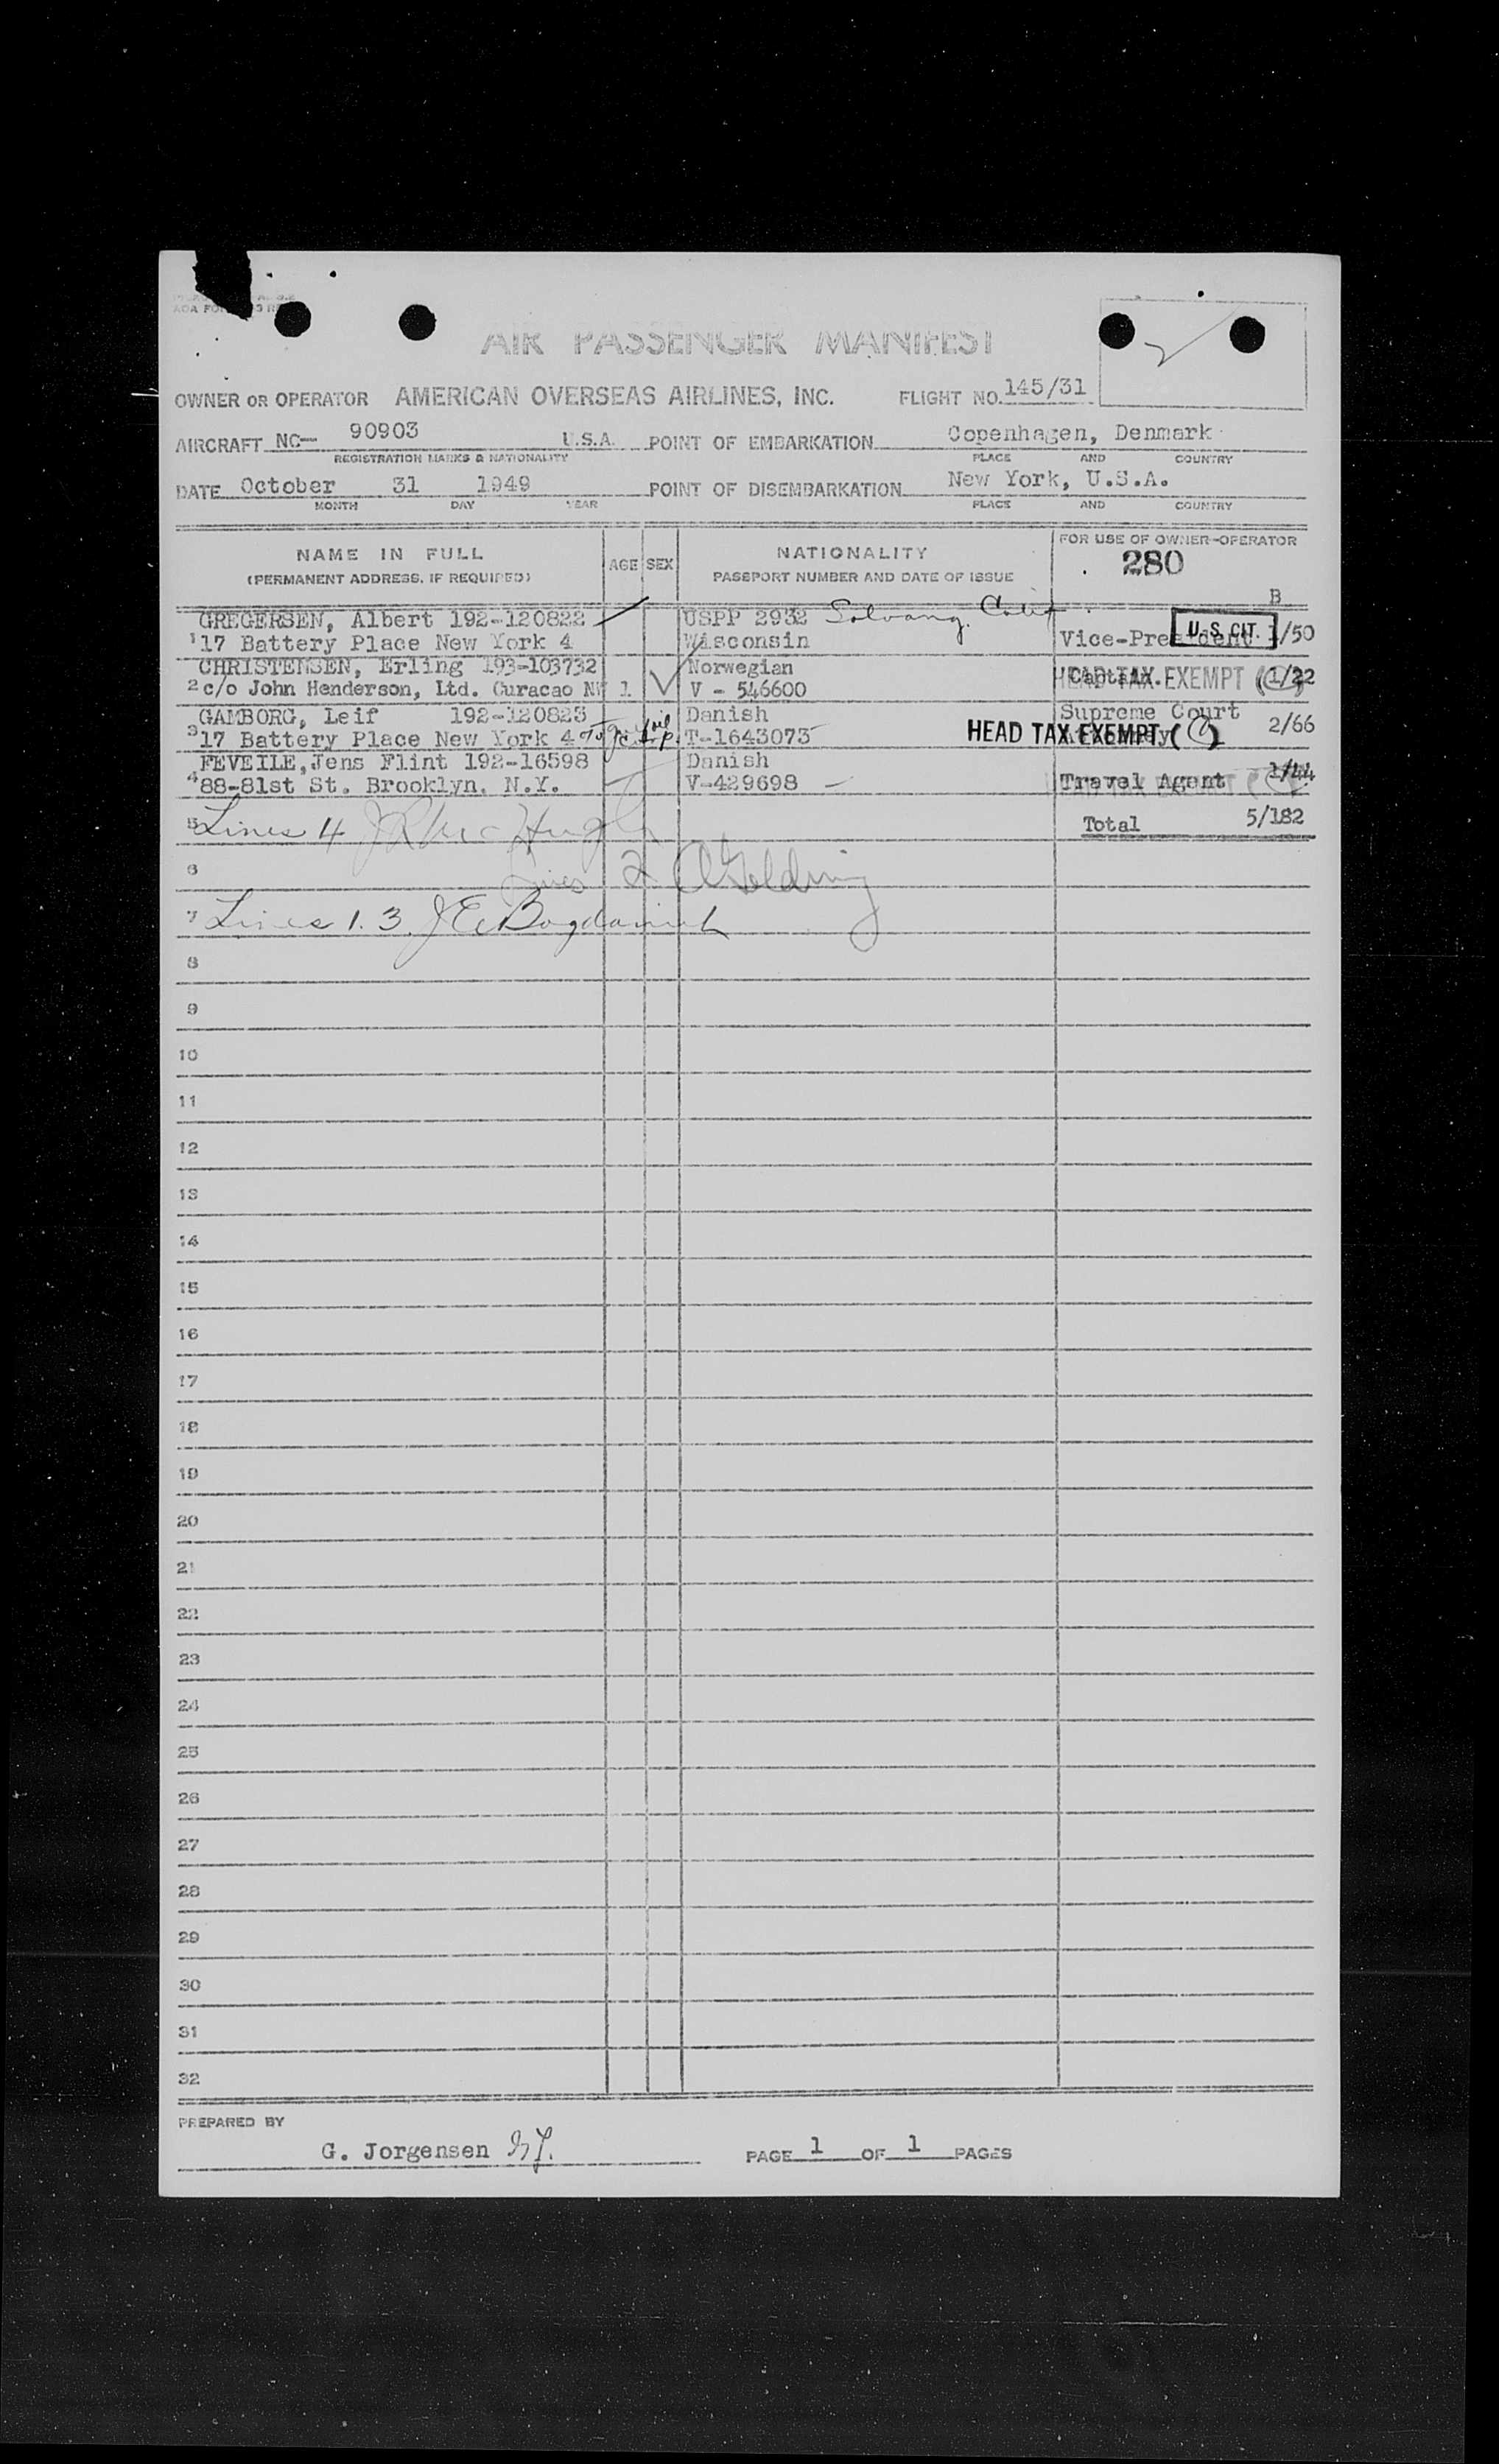 AIR PASSENGER MANIFEST
OWNER OR OPERATOR AMERICAN OVERSEAS AIRLINES, INC. FLIGHT NO. 145/31
AIRCRAFT NC— 90903 U.S.A. POINT OF EMBARKATION Copenhagen, Denmark
REGISTRATION MARKS & NATIONALITY PLACE AND COUNTRY
DATE October 31 1949 POINT OF DISEMBARKATION New York, U.S.A.
MONTH DAY YEAR PLACE AND COUNTRY
NAME IN FULL
(PERMANENT ADDRESS, IF REQUIRED)
AGE SEX
NATIONALITY
PASSPORT NUMBER AND DATE OF ISSUE
FOR USE OF OWNER-OPERATOR
280
B
GREGERSEN, Albert 192-120822 USPP 2932 Solvang. Calif
1 17 Battery Place New York 4 Wisconsin Vice-President U.S. CIT. /50
CHRISTENSEN, Erling 193-103732 Norwegian
2 c/o John Henderson, Ltd. Curacao NWI V - 546600 Captain. HEAD TAX EXEMPT 1/22
GAMBORG, Leif 192-120823 Danish Supreme Court
3 17 Battery Place New York 4 T-1643073 HEAD TAX EXEMPT 2/66
FEVEILE, Jens Flint 192-16598 Danish
4 88-81st St. Brooklyn, N.Y. V-429698 Travel Agent 1/44
5 Lines 4 J R McHugh Total 5/182
6 Lines 2 Golding
7 Lines 1. 3. J E Bogdanich
8
9
10
11
12
13
14
15
16
17
18
19
20
21
22
23
24
25
26
27
28
29
30
31
32
PREPARED BY
G. Jorgensen GJ. PAGE 1 OF 1 PAGES